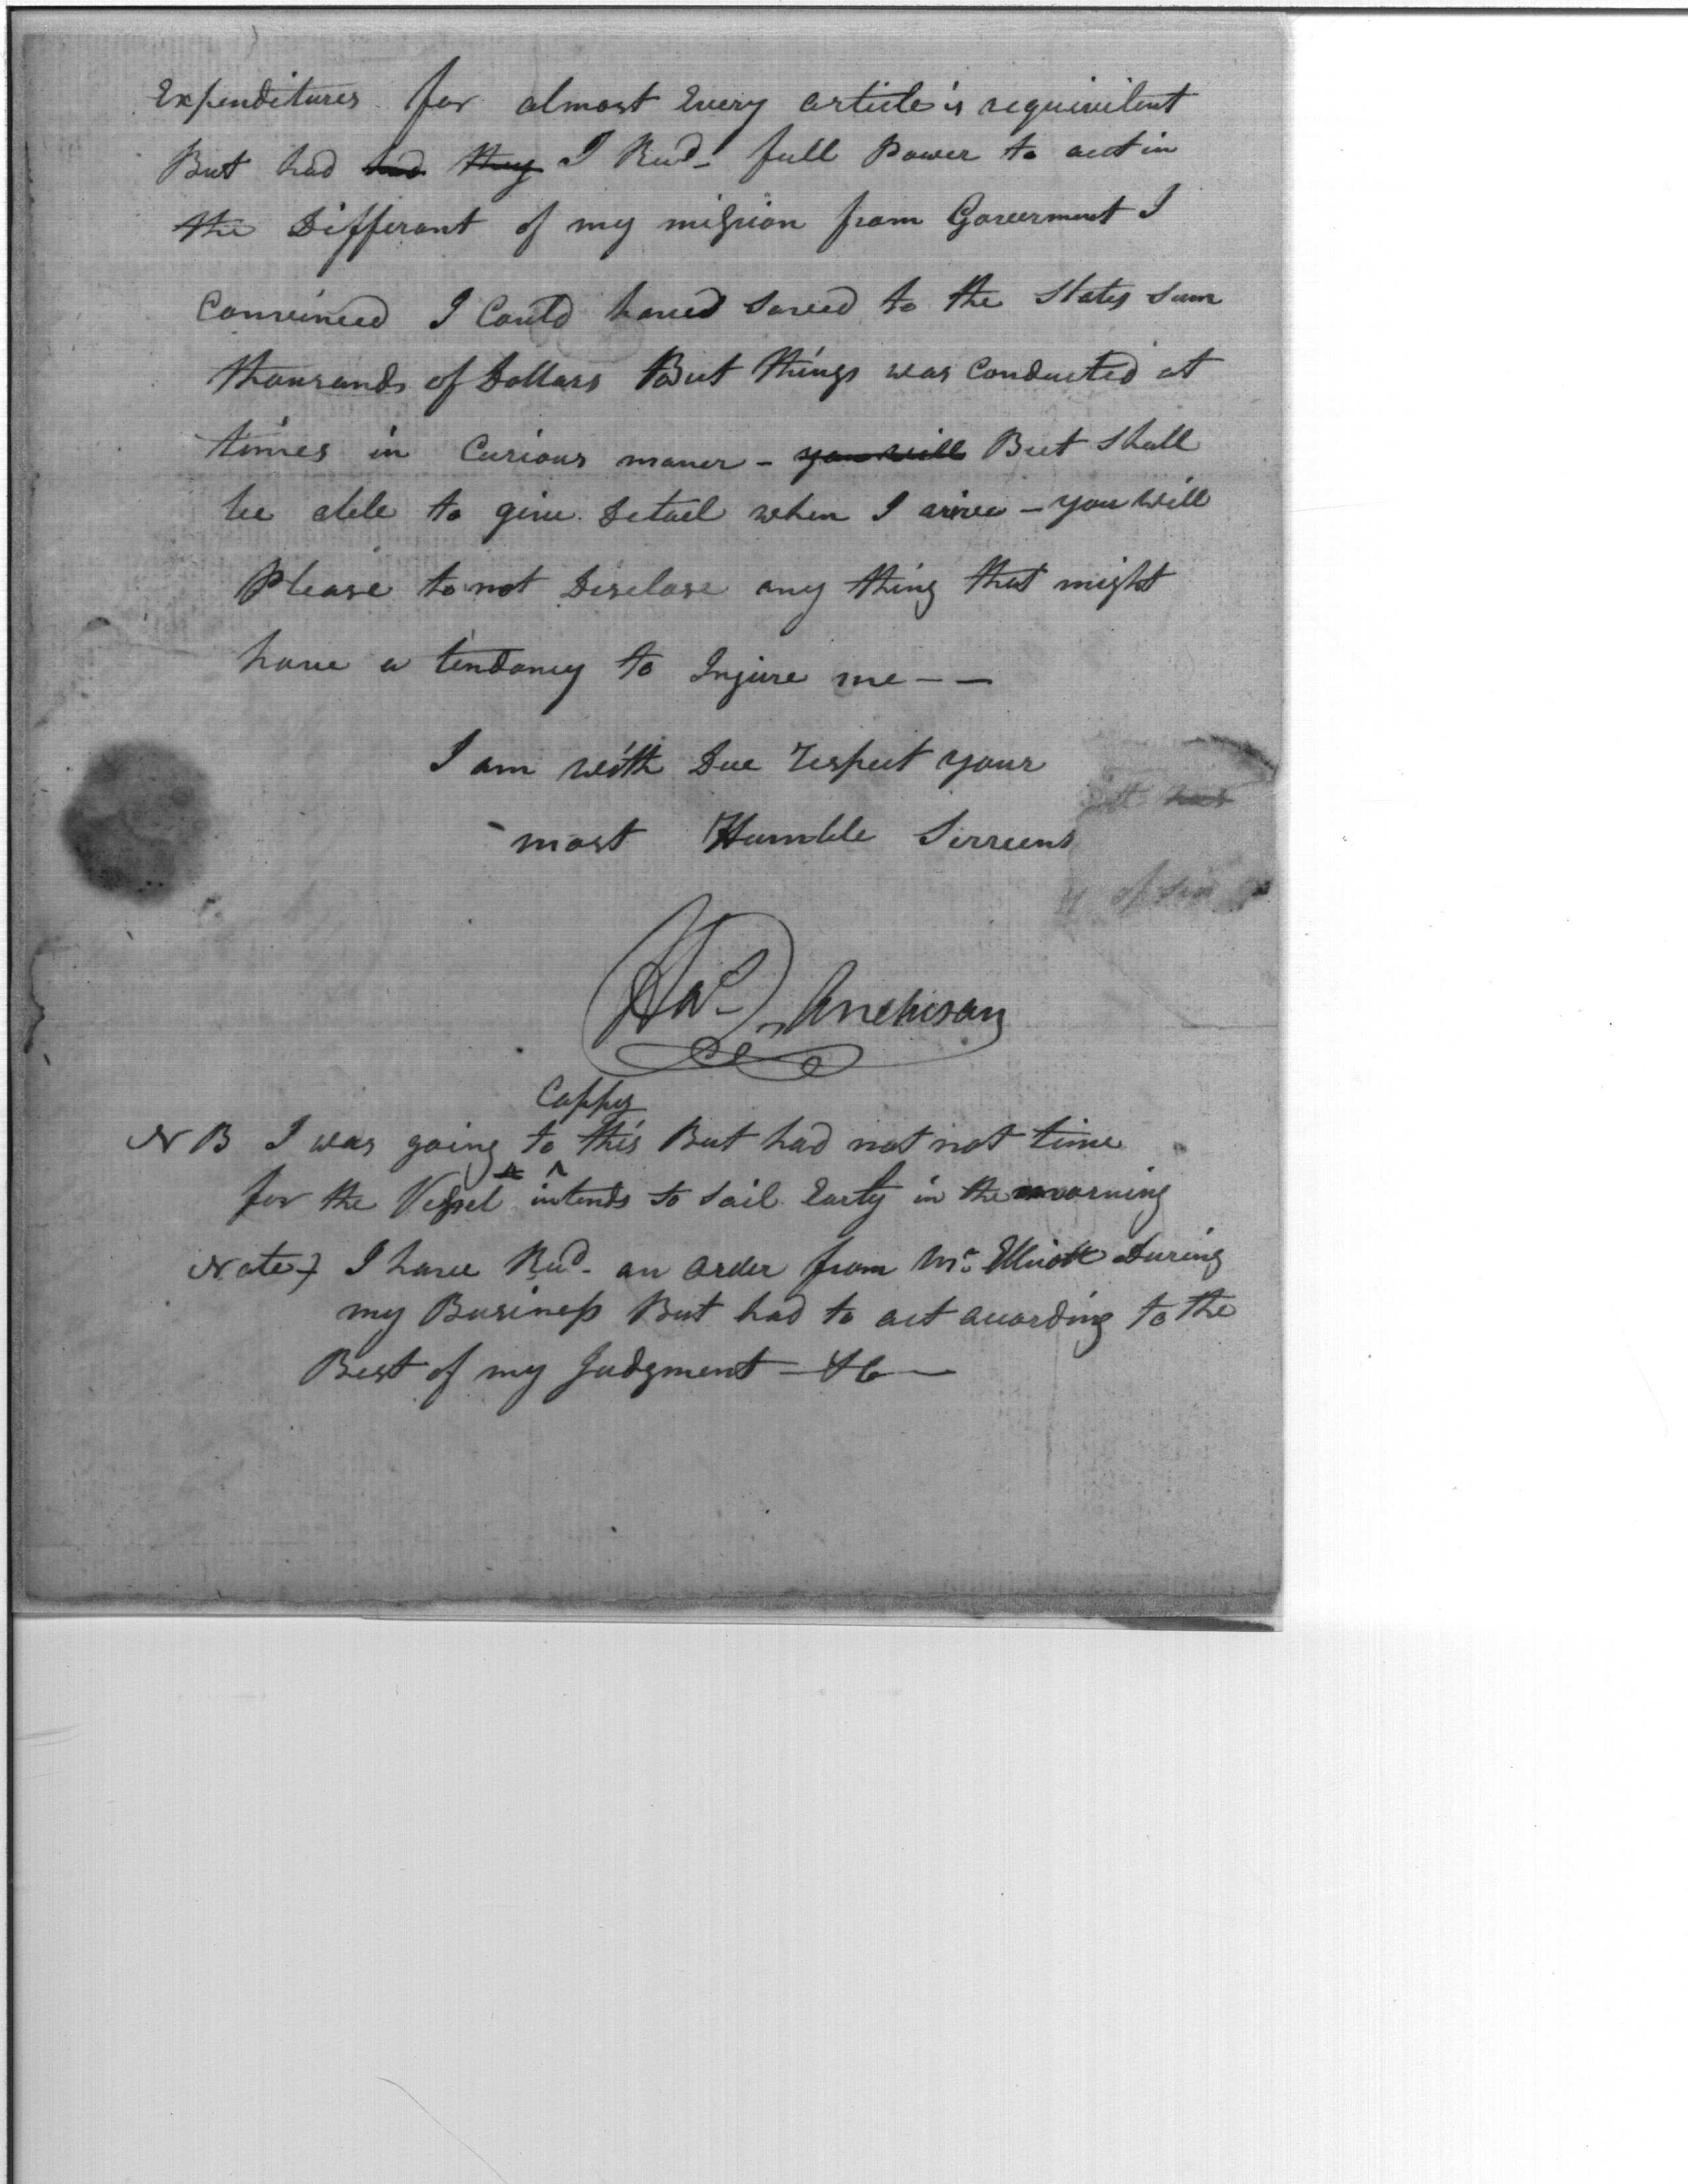 Expenditures for almost Every article is requivilent
But had had they I Recd- full Power to act in
the Differant of my mission from Goverment I
Convinced I Could haved saved to the States sum
thousands of Dollars But things was Conducted at
times in Curious maner - you will But Shall
be able to give Detail when I arive - you will
Please to not Disclose any thing that might
have a tendancy to Injure me - -
I am with Due respect your
most Humble Servent
Hutchison
Coppy
N B I was going to this But had not not time
for the Vessel intends to Sail Early in the morning
Note } I have Recd- an order from Mr Elliott During
my Business But had to act according to the
Best of my Judgment - &c -